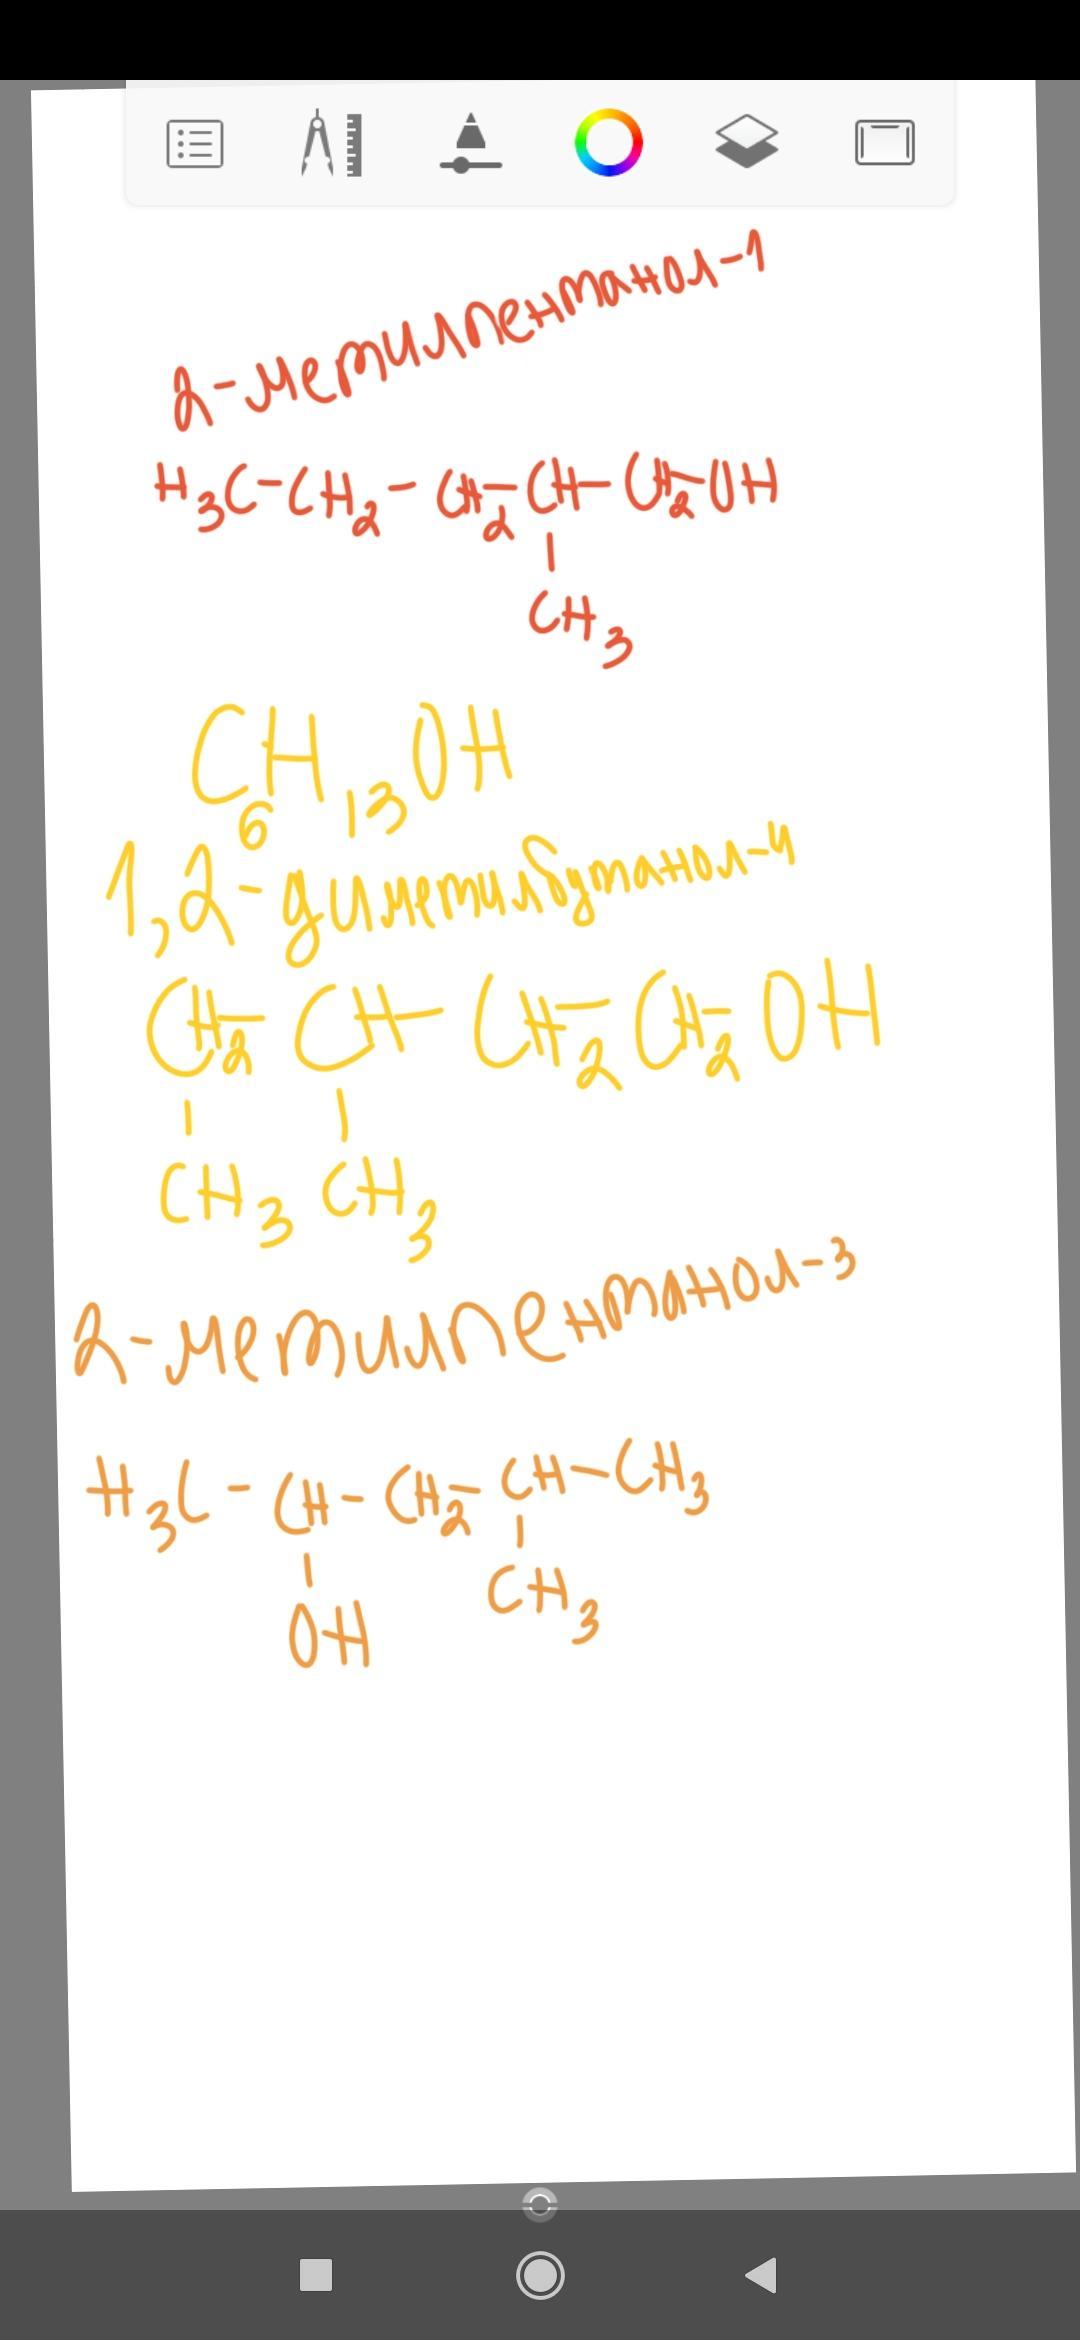 2-метилпентанол-1
H₃C-CH₂-CH₂-CH-CH₂-OH
CH₃
C₆H₁₃OH
1,2-диметилбутанол-4
CH₂-CH-CH₂-CH₂-OH
CH₃ CH₃
2-метилпентанол-3
H₃C-CH-CH₂-CH-CH₃
OH CH₃